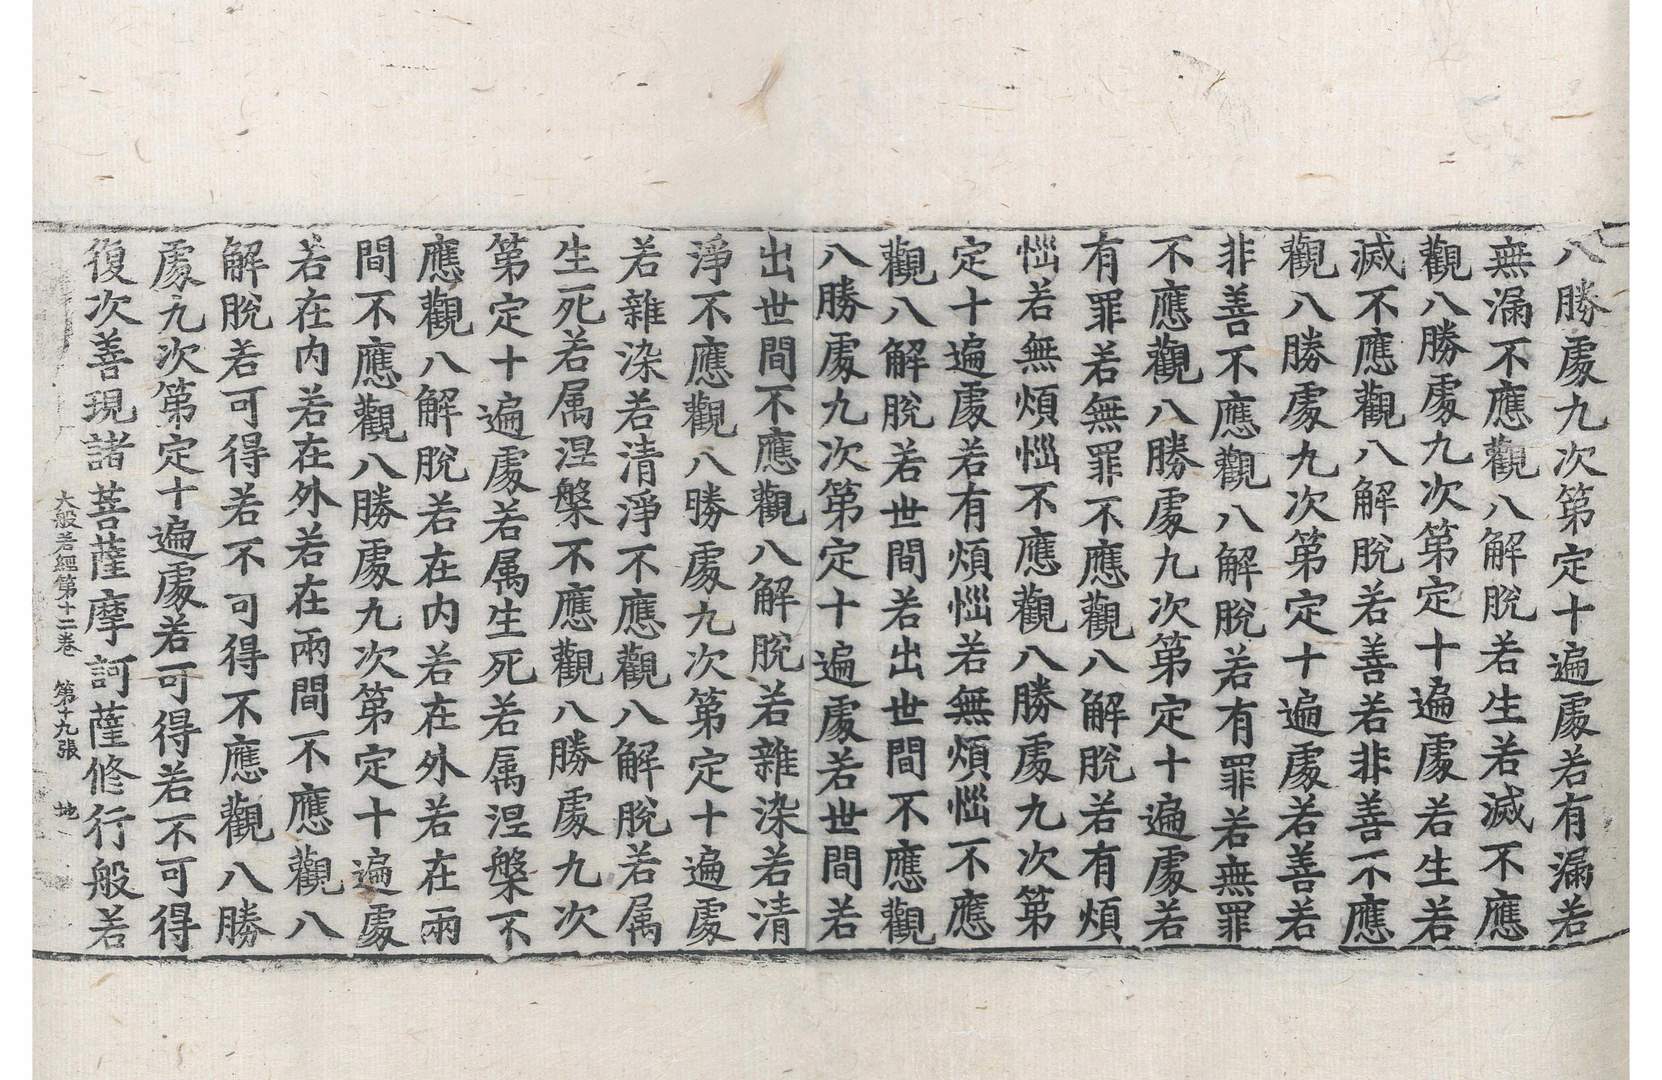 八勝處九次第定十遍處若有漏若
無漏不應觀八解脫若生若滅不應
觀八勝處九次第定十遍處若生若
滅不應觀八解脫若善若非善不應
觀八勝處九次第定十遍處若善若
非善不應觀八解脫若有罪若無罪
不應觀八勝處九次第定十遍處若
有罪若無罪不應觀八解脫若有煩
惱若無煩惱不應觀八勝處九次第
定十遍處若有煩惱若無煩惱不應
觀八解脫若世間若出世間不應觀
八勝處九次第定十遍處若世間若
出世間不應觀八解脫若雜染若清
淨不應觀八勝處九次第定十遍處
若雜染若清淨不應觀八解脫若属
生死若属涅槃不應觀八勝處九次
第定十遍處若属生死若属涅槃不
應觀八解脫若在内若在外若在兩
間不應觀八勝處九次第定十遍處
若在内若在外若在兩間不應觀八
解脫若可得若不可得不應觀八勝
處九次第定十遍處若可得若不可得
復次善現諸菩薩摩訶薩修行般若
大般若經第十二卷 第十九張 地